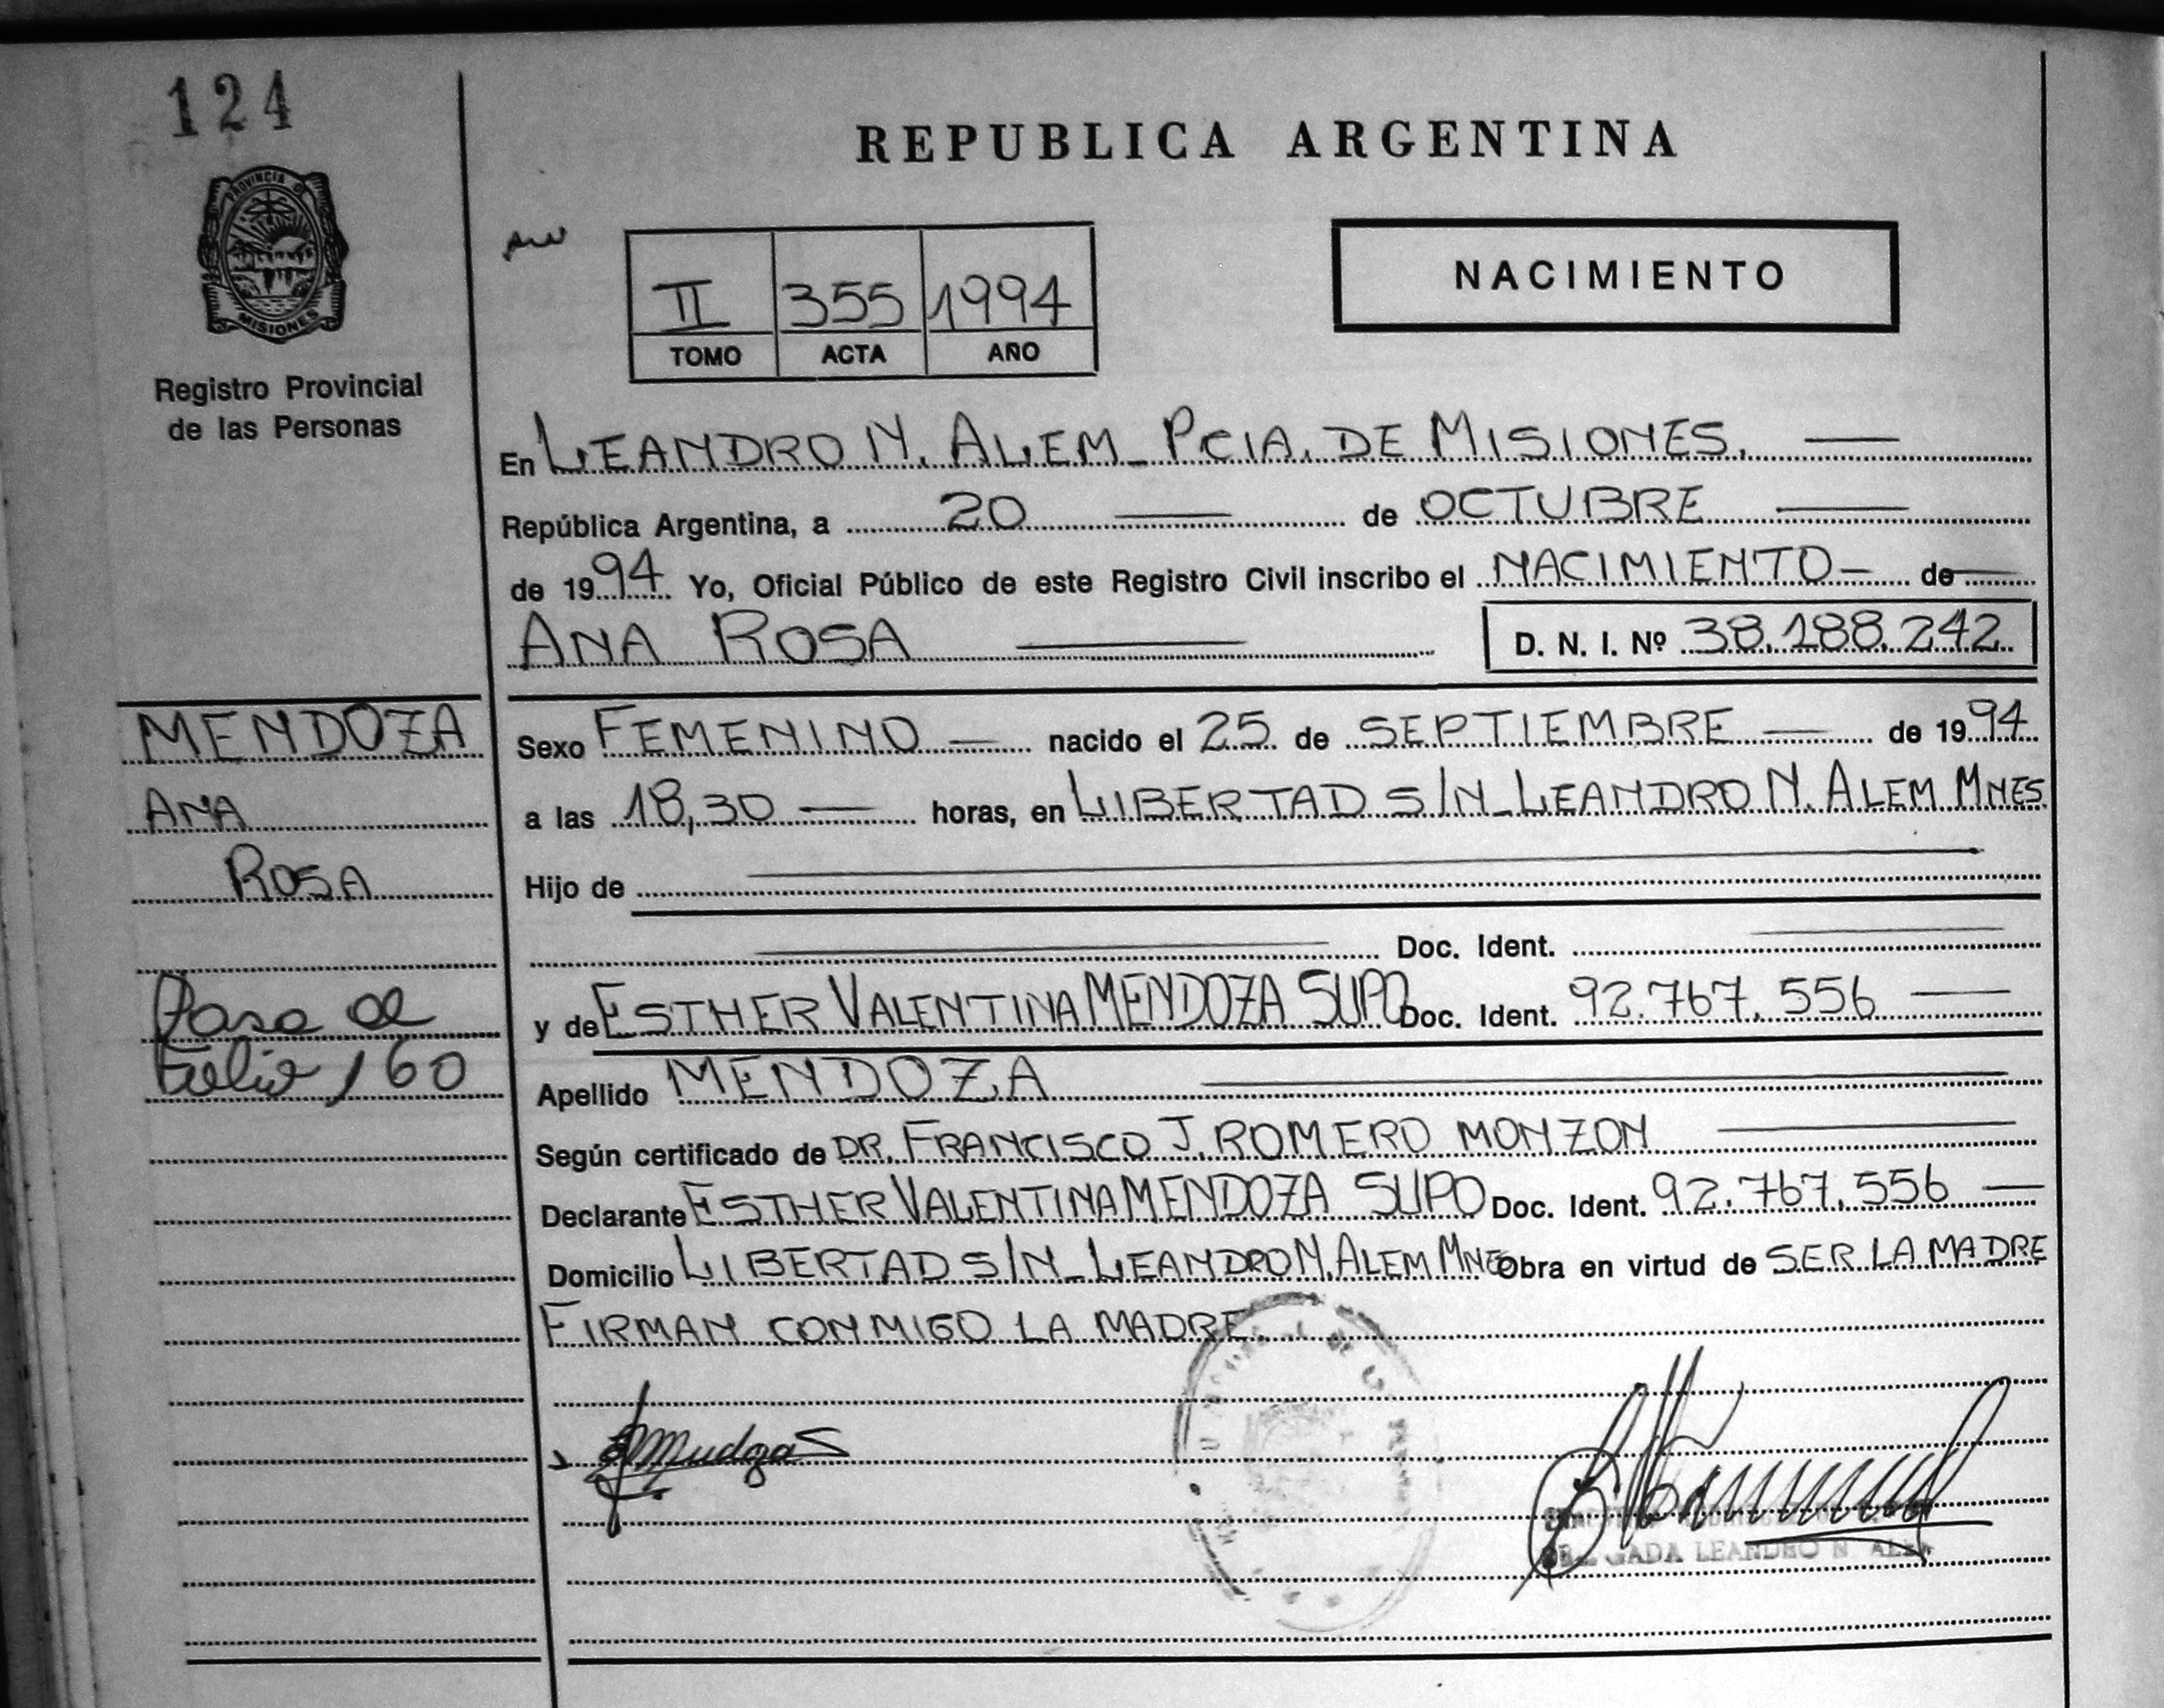 124
PROVINCIA D
MISIONES
Registro Provincial
de las Personas
REPUBLICA ARGENTINA
II 355 1994
TOMO ACTA AÑO
NACIMIENTO
En LEANDRO N. ALEM_ PCIA. DE MISIONES.
República Argentina, a 20 de OCTUBRE
de 1994 Yo, Oficial Público de este Registro Civil inscribo el NACIMIENTO de
ANA ROSA D. N. I. Nº 38.188.242
MENDOZA
ANA
ROSA
Pasa al
folio 160
Sexo FEMENINO nacido el 25 de SEPTIEMBRE de 1994
a las 18,30 horas, en LIBERTAD S/N_ LEANDRO N. ALEM MNES
Hijo de
Doc. Ident.
y de ESTHER VALENTINA MENDOZA SUPO Doc. Ident. 92.767.556
Apellido MENDOZA
Según certificado de DR. FRANCISCO J. ROMERO MONZON
Declarante ESTHER VALENTINA MENDOZA SUPO Doc. Ident. 92.767.556
Domicilio LIBERTAD S/N_ LEANDRO N. ALEM MNES Obra en virtud de SER LA MADRE
FIRMAN CONMIGO LA MADRE.
LEANDRO N ALEM